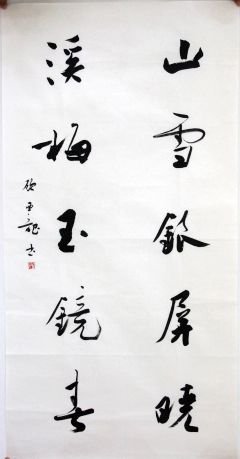 山雪銀屏曉
溪梅玉鏡春